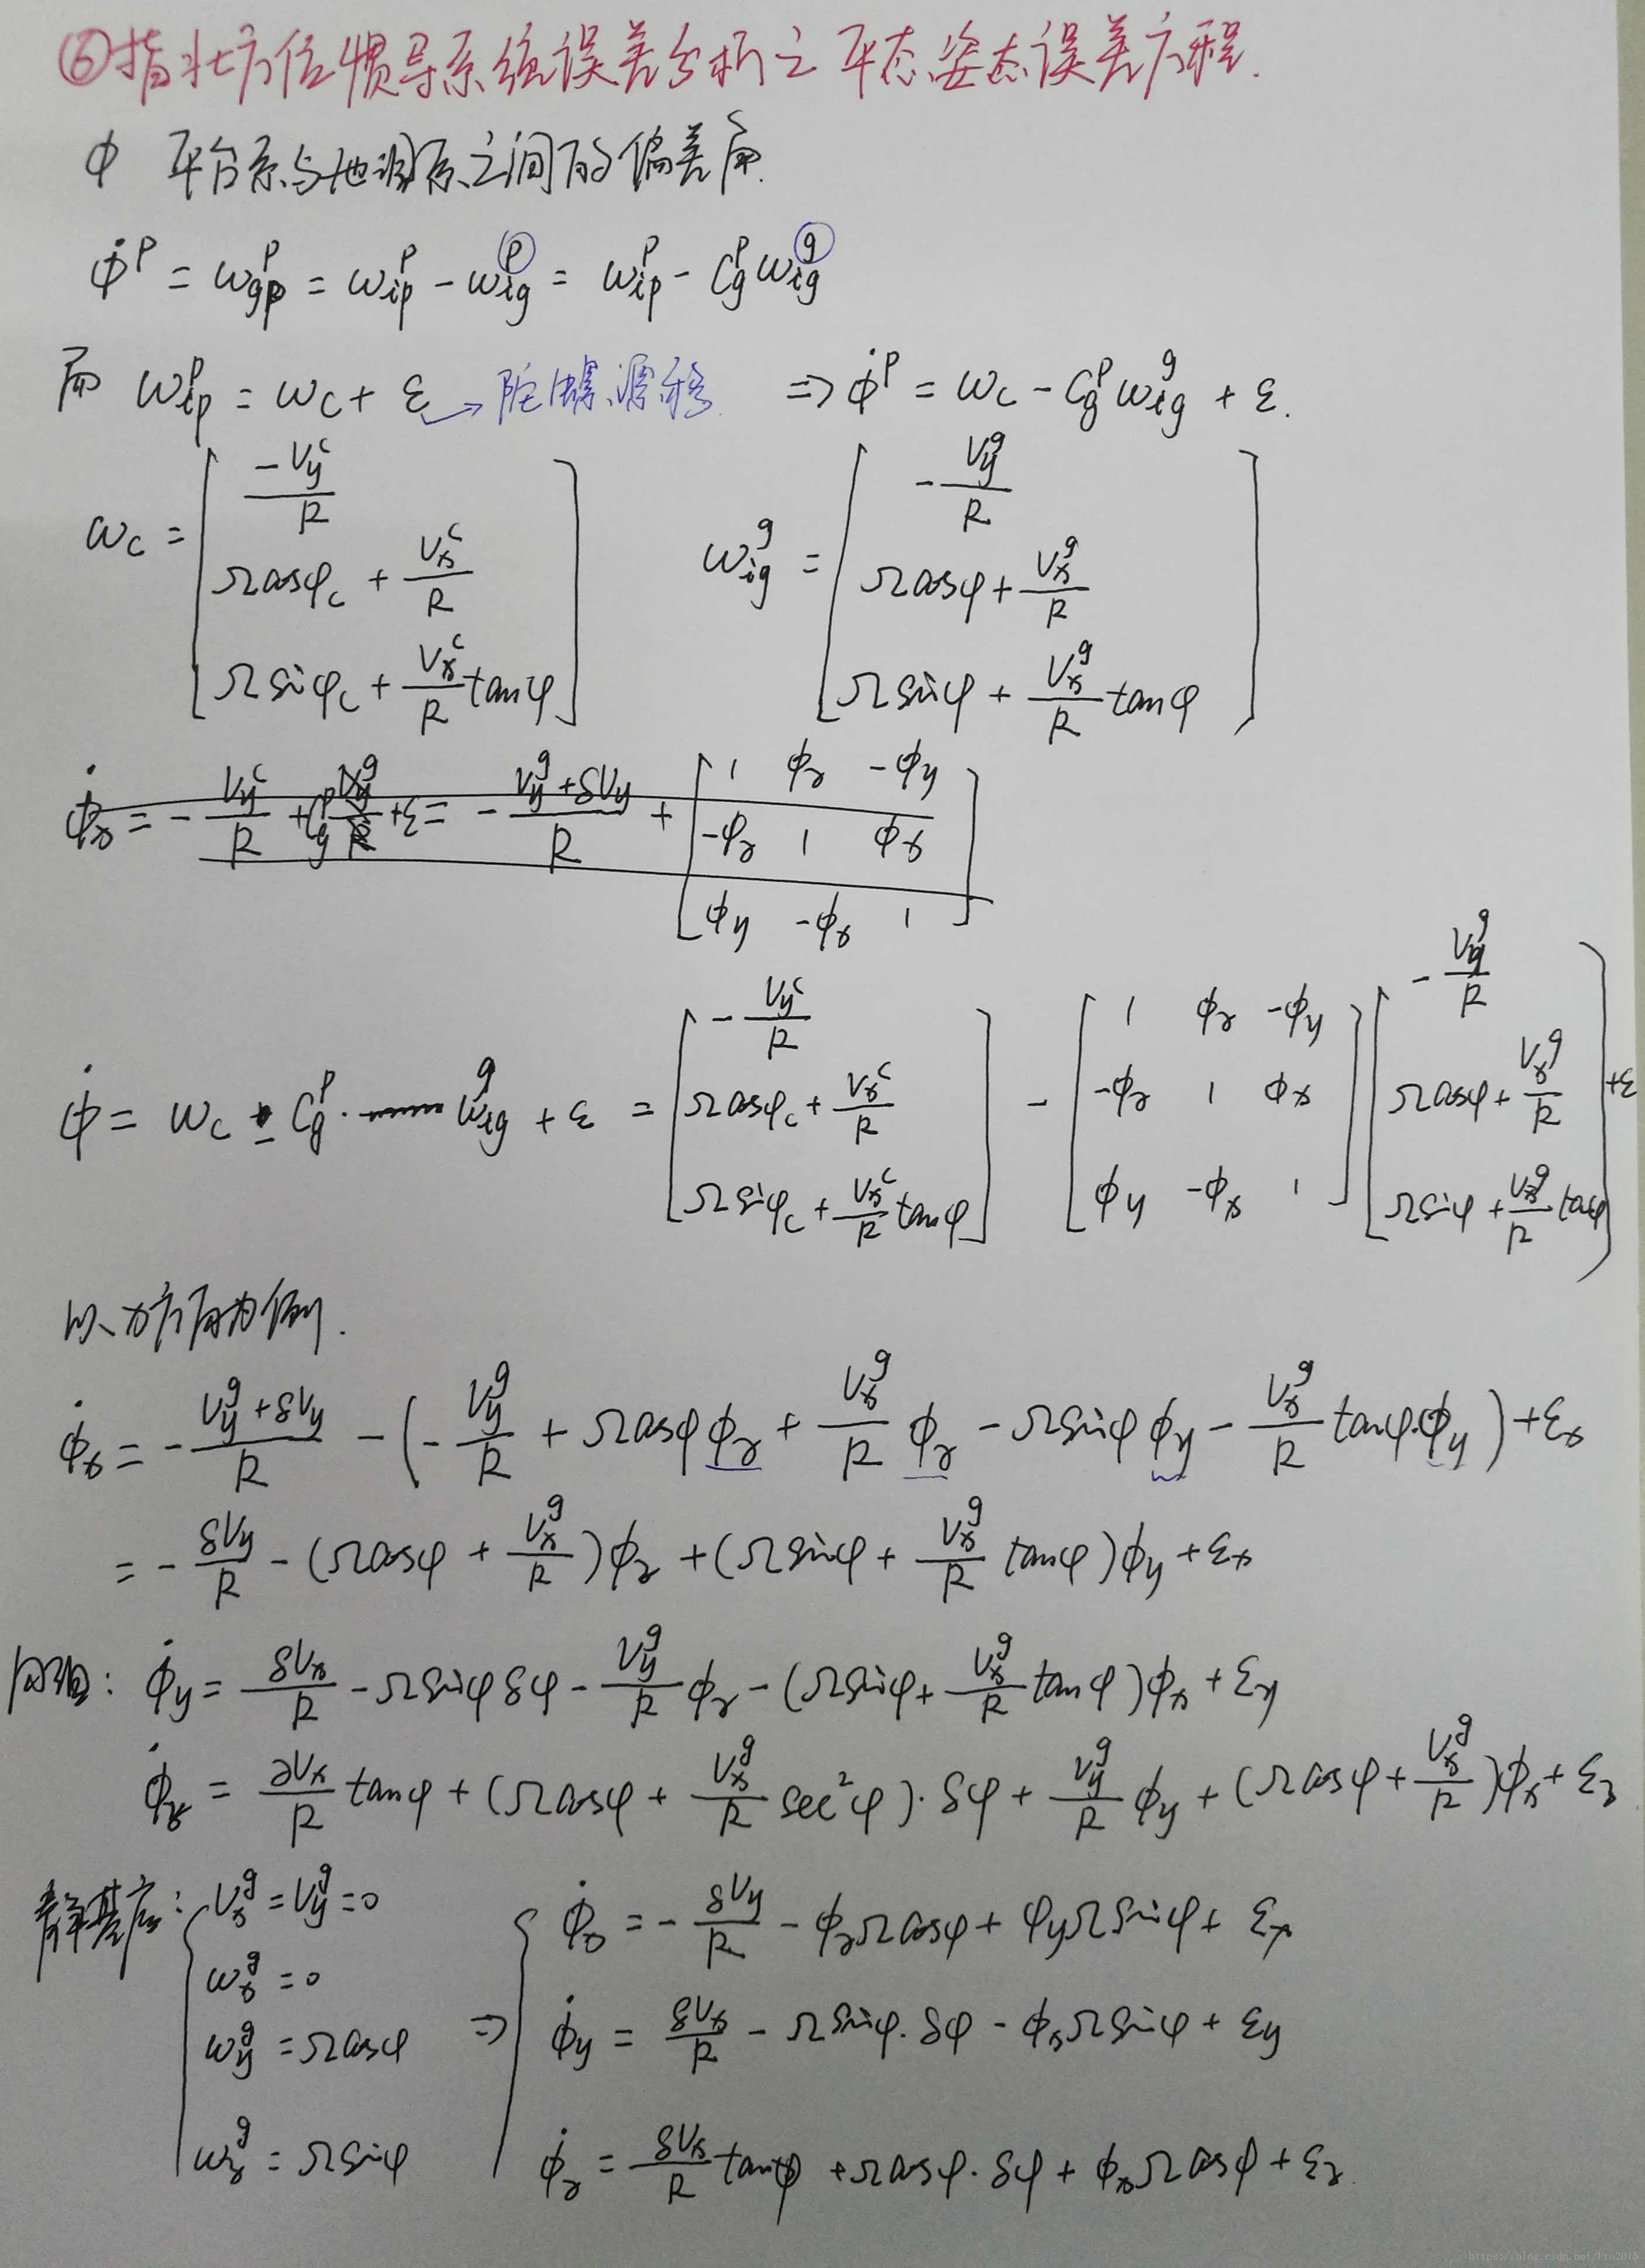 ⑥指北方位惯导系统误差分析之平态姿态误差方程.
φ 平台系与地理系之间的偏差角.
φ̇^p = ω_gp^p = ω_ip^p - ω_ig^p = ω_ip^p - C_g^p ω_ig^g
而 ω_ip^p = ω_c + ε → 陀螺漂移 ⇒ φ̇^p = ω_c - C_g^p ω_ig^g + ε.
ω_c = [ -V_y^c/R ; Ωcosφ_c + V_x^c/R ; Ωsinφ_c + V_x^c/R tanφ ] ω_ig^g = [ -V_y^g/R ; Ωcosφ + V_x^g/R ; Ωsinφ + V_x^g/R tanφ ]
φ̇_x = -V_y^c/R + C_g^p V_y^g/R + ε = -(V_y^g + δV_y)/R + [ 1 φ_z -φ_y ; -φ_z 1 φ_x ; φ_y -φ_x 1 ]
φ̇ = ω_c - C_g^p · ω_ig^g + ε = [ -V_y^c/R ; Ωcosφ_c + V_x^c/R ; Ωsinφ_c + V_x^c/R tanφ ] - [ 1 φ_z -φ_y ; -φ_z 1 φ_x ; φ_y -φ_x 1 ] [ -V_y^g/R ; Ωcosφ + V_x^g/R ; Ωsinφ + V_x^g/R tanφ ] + ε
以x方向为例.
φ̇_x = -(V_y^g + δV_y)/R - ( -V_y^g/R + Ωcosφ φ_z + V_x^g/R φ_z - Ωsinφ φ_y - V_x^g/R tanφ·φ_y ) + ε_x
= -δV_y/R - (Ωcosφ + V_x^g/R)φ_z + (Ωsinφ + V_x^g/R tanφ)φ_y + ε_x
同理: φ̇_y = δV_x/R - Ωsinφ δφ - V_y^g/R φ_z - (Ωsinφ + V_x^g/R tanφ)φ_x + ε_y
φ̇_z = ∂V_x/R tanφ + (Ωcosφ + V_x^g/R sec²φ)·δφ + V_y^g/R φ_y + (Ωcosφ + V_x^g/R)φ_x + ε_z
静基座: V_x^g = V_y^g = 0
ω_x^g = 0
ω_y^g = Ωcosφ
ω_z^g = Ωsinφ
⇒ φ̇_x = -δV_y/R - φ_zΩcosφ + φ_yΩsinφ + ε_x
φ̇_y = δV_x/R - Ωsinφ·δφ - φ_xΩsinφ + ε_y
φ̇_z = δV_x/R tanφ + Ωcosφ·δφ + φ_xΩcosφ + ε_z